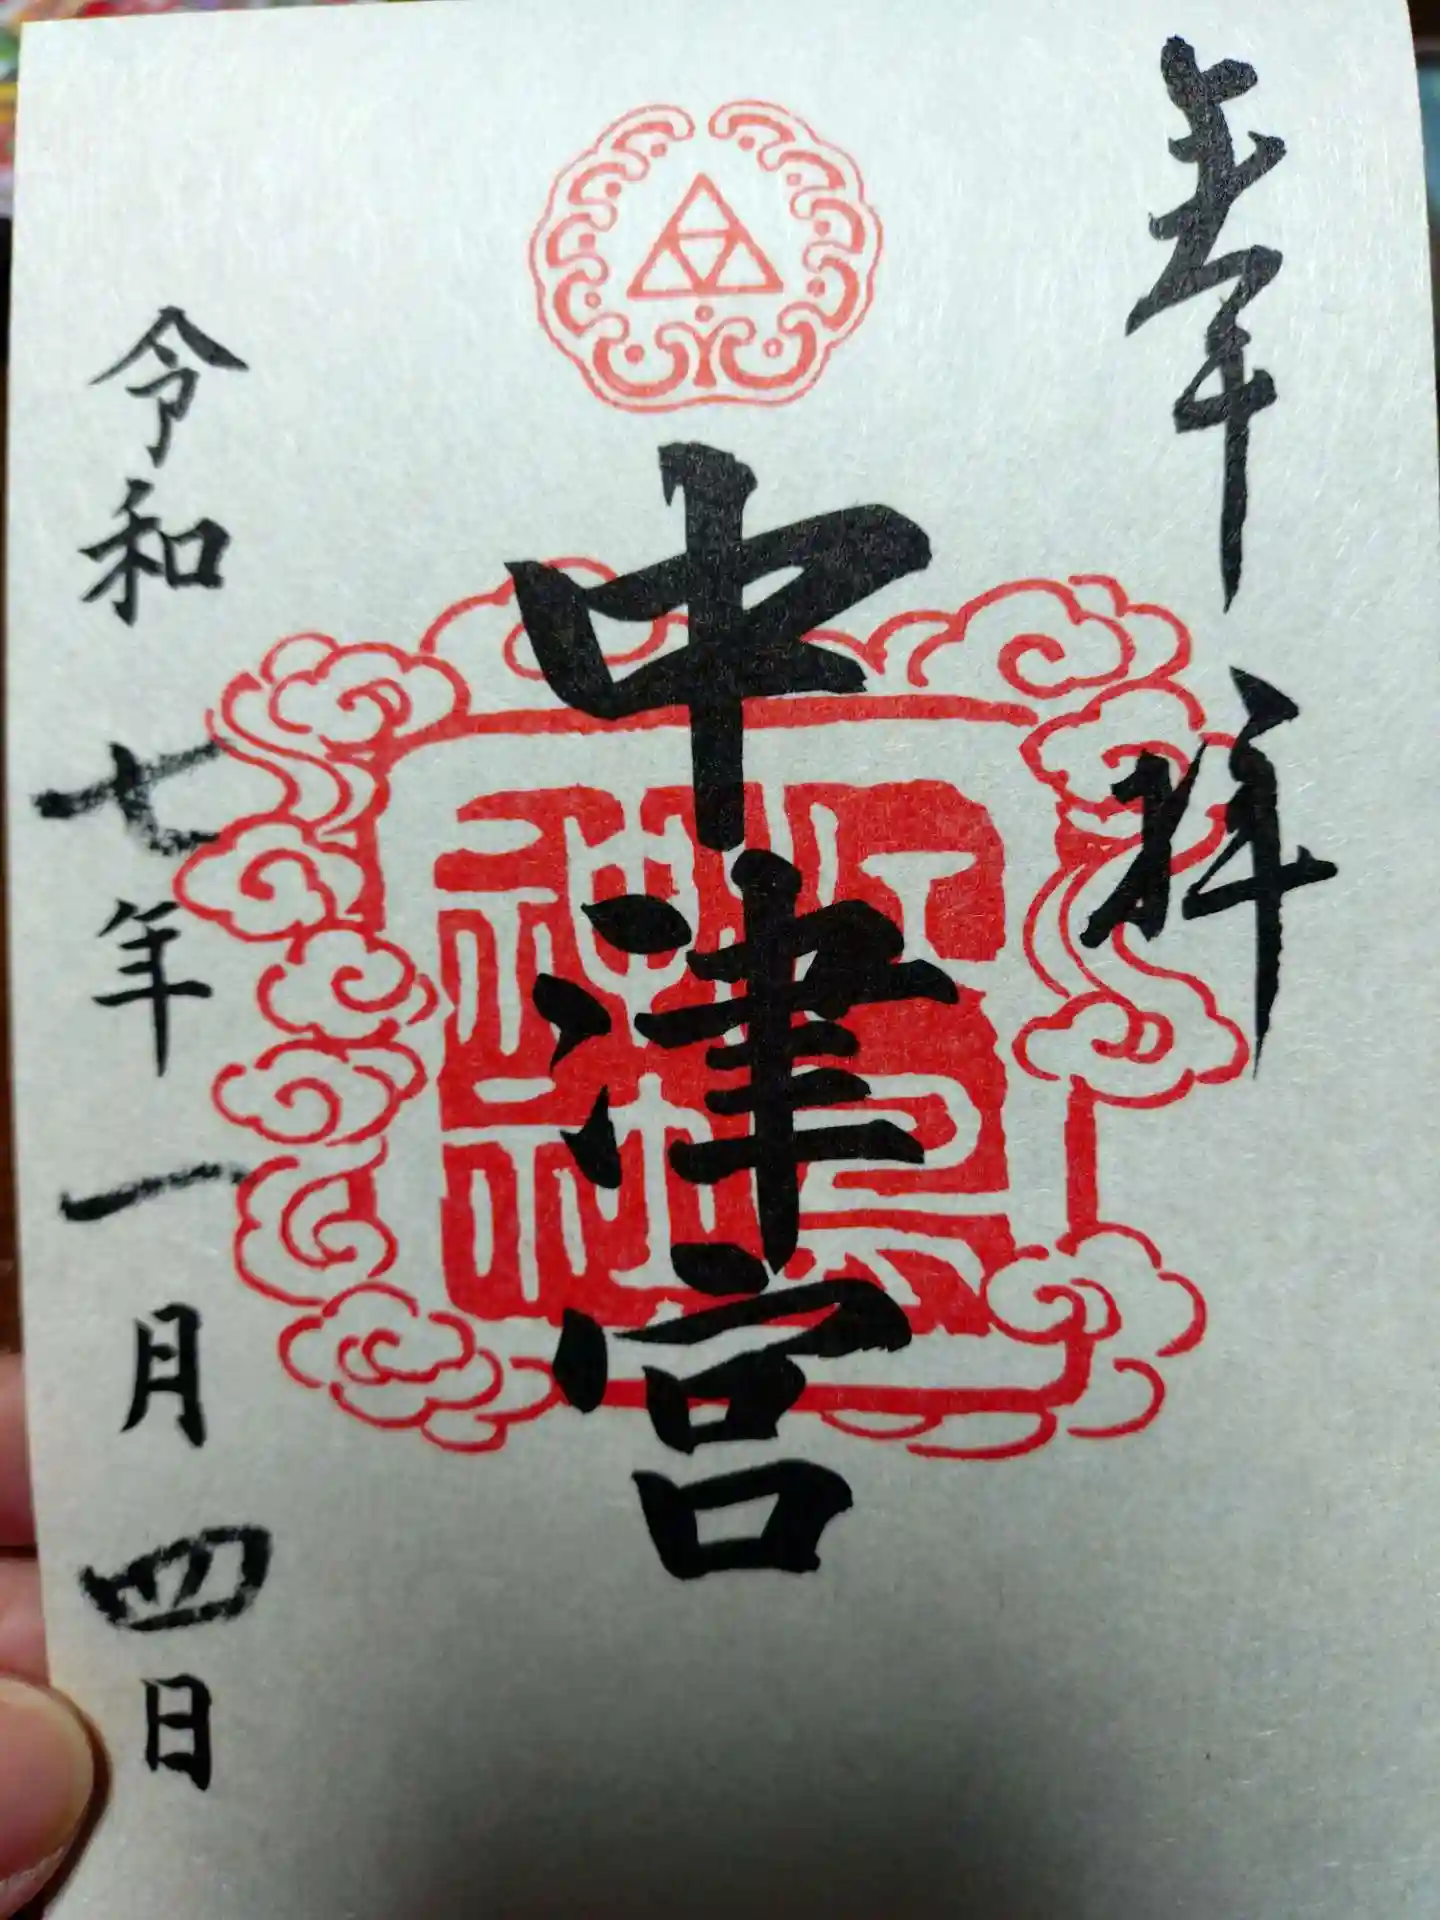 奉拝
中津宮
江島神社
令和七年一月四日